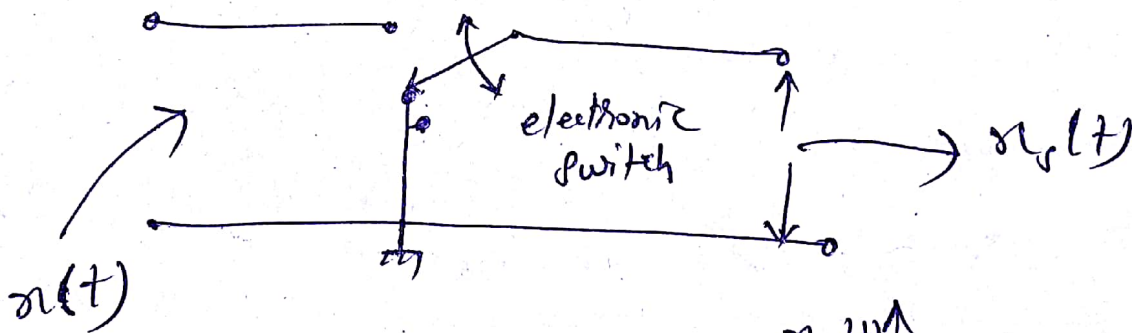 electronic
switch
x_s(t)
x(t)